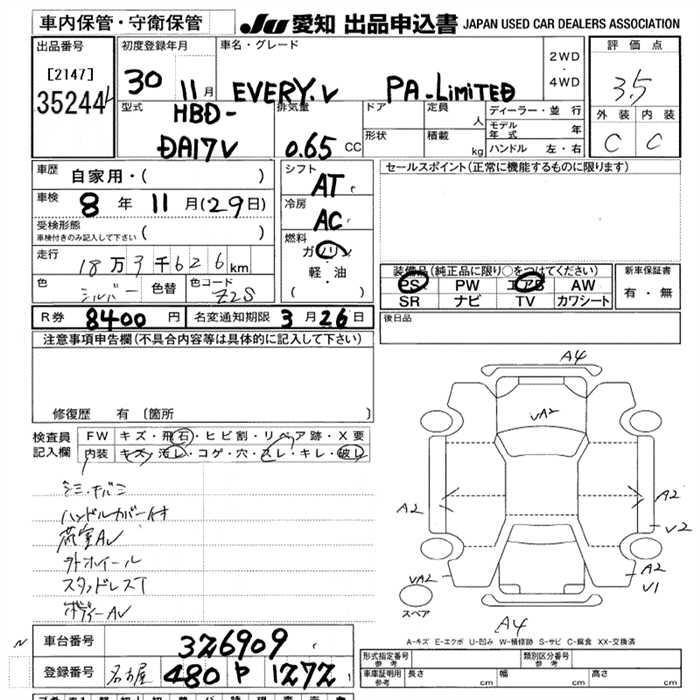 車内保管・守衛保管
JU 愛知 出品申込書 JAPAN USED CAR DEALERS ASSOCIATION
出品番号
[2147]
35244
初度登録年月
30 11月
車名・グレード
EVERY.V PA-LIMITED
2WD
・
4WD
評価点
3.5
外装 内装
C C
型式
HBD-
DA17V
排気量
0.65 CC
ドア
定員
人
形状
積載
kg
ディーラー・並行
モデル年式 年
ハンドル 左・右
車歴
自家用・( )
車検
8年 11月(29日)
受検形態
車検付きのみ記入して下さい ( )
走行
18万3千626km
色
シルバー
色替
色コード
Z2S
シフト
AT
冷房
AC
燃料
ガソリン
軽・油
( )
セールスポイント(正常に機能するものに限ります)
装備品(純正品に限り○をつけてください)
PS PW エアB AW
SR ナビ TV カワシート
新車保証書
有・無
R券 8400円
名変通知期限 3月26日
後日品
注意事項申告欄(不具合内容等は具体的に記入して下さい)
修復歴 有 [箇所 ]
検査員
記入欄
FW キズ・飛石・ヒビ割・リペア跡・X要
内装 キズ・汚レ・コゲ・穴・スレ・キレ・破レ
ハンドルカバー付
荷室AU
外ホイール
スタッドレスT
ボディーAU
A4
UA2
A2
A2
U2
UA2
A2
U1
スペア
A4
A-キズ E-エクボ U-凹み W-補修跡 S-サビ C-腐食 XX-交換済
N
車台番号
326909
登録番号
名古屋 480 P 1272
形式指定番号
参考
類別区分番号
参考
車庫証明用
参考
長さ cm
幅 cm
高さ cm